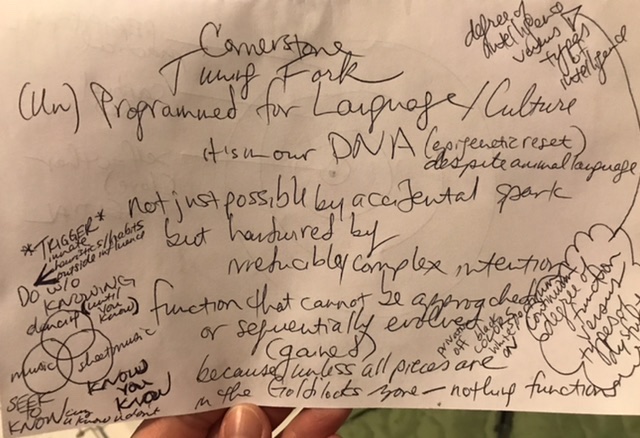 Cornerstone
Tuning Fork
(Un) Programmed for Language/Culture
it's in our DNA (epigenetic reset)
despite animal language
not just possible by accidental spark
but hardwired by
irreducibly complex intention
function that cannot be approached
or sequentially evolved
(gained)
because unless all pieces are
in the Goldilocks zone – nothing functions
degree of
intelligence
versus
types of
intelligence
*TRIGGER*
innate
heuristics/habits
outside influence
DO w/o
KNOWING
dancing (until
you
know)
music
sheet music
SEEK
TO
KNOW
KNOW
YOU
KNOW
u know u dont
black
degree of
function
versus
types of